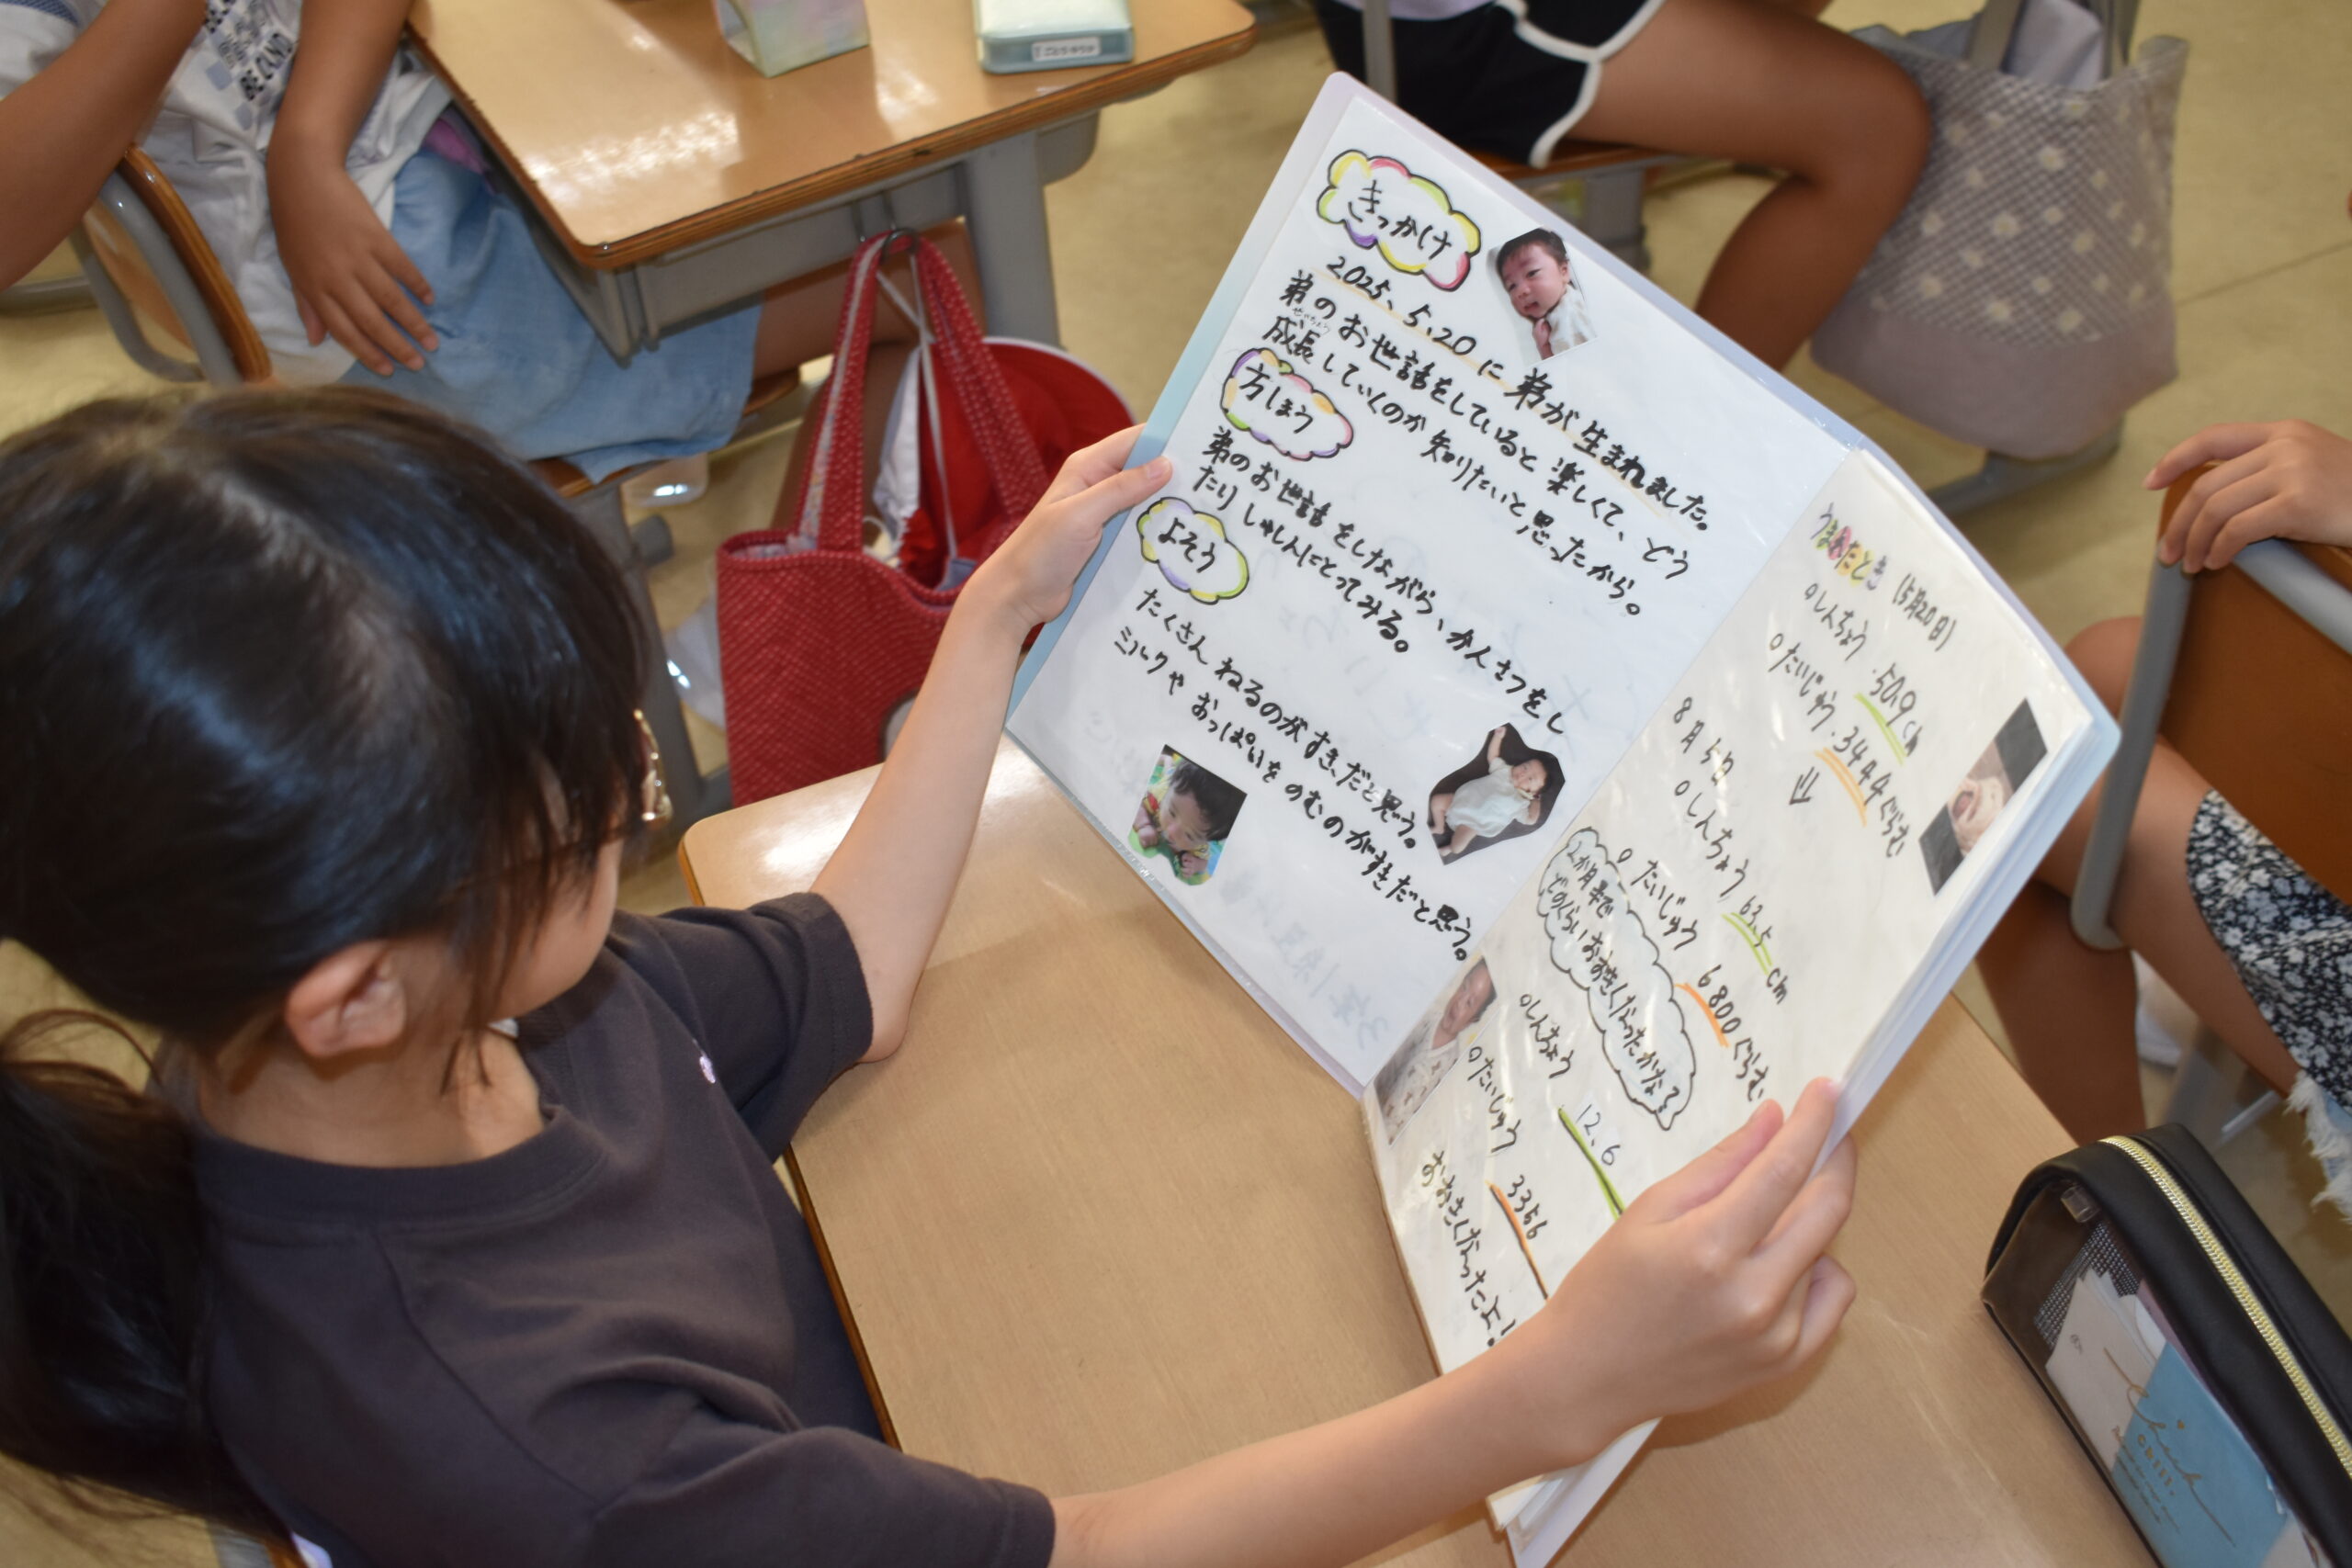 きっかけ
2025、5、20 に 弟が 生まれました。
弟の お世話をしていると 楽しくて、どう
せいちょう
成長 していくのか 知りたいと 思ったから。
方しほう
弟のお世話をしながら、かんさつをし
たり しゃしんにとってみる。
よそう
たくさん ねるのがすきだと思う。
ミルクや おっぱいを のむのがすきだと思う。
うまれたとき (5月20日)
○しんちょう 50.9cm
○たいじゅう 3444ぐらむ
↓
8月5日
○しんちょう 63.5cm
○たいじゅう 6800ぐらむ
2か月半で
どのくらいおおきくなったかな?
○しんちょう 12.6
○たいじゅう 3356
おおきくなったよ!